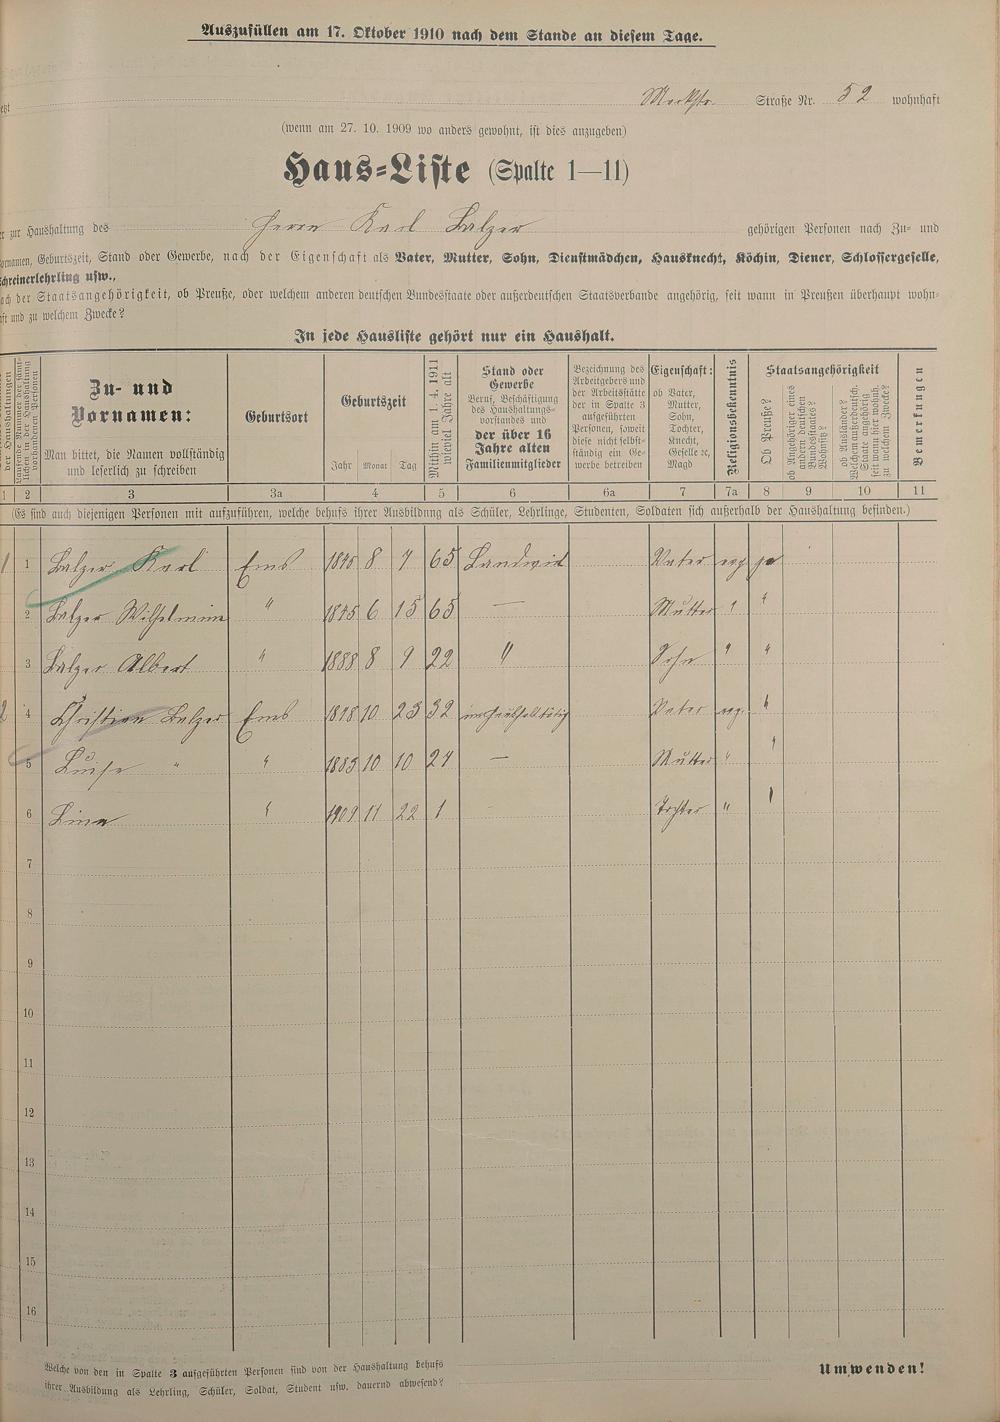 Auszufüllen am 17. Oktober 1910 nach dem Stande an diesem Tage.
Straße Nr. 52 wohnhaft
(wenn am 27. 10. 1909 wo anders gewohnt, ist dies anzugeben)
Haus=Liste (Spalte 1—11)
zur Haushaltung des Herrn Karl Balzer gehörigen Personen nach Zu= und
Geburtszeit, Stand oder Gewerbe, nach der Eigenschaft als Vater, Mutter, Sohn, Dienstmädchen, Hausknecht, Köchin, Diener, Schlossergeselle,
usw.,
der Staatsangehörigkeit, ob Preuße, oder welchem anderen deutschen Bundesstaate oder außerdeutschen Staatsverbande angehörig, seit wann in Preußen überhaupt wohn=
und zu welchem Zwecke?
In jede Hausliste gehört nur ein Haushalt.
der Haushaltungen
Laufende Nummer der sämt=
lichen in der Haushaltung
vorhandenen Personen
Zu= und
Vornamen:
Man bittet, die Namen vollständig
und leserlich zu schreiben
Geburtsort
Geburtszeit
Jahr Monat Tag
Mithin am 1. 4. 1911
wieviel Jahre alt
Stand oder
Gewerbe
Beruf, Beschäftigung
des Haushaltungs=
vorstandes und
der über 16
Jahre alten
Familienmitglieder
Bezeichnung des
Arbeitgebers und
der Arbeitsstätte
der in Spalte 3
aufgeführten
Personen, soweit
diese nicht selbst=
ständig ein Ge=
werbe betreiben
Eigenschaft:
ob Vater,
Mutter,
Sohn,
Tochter,
Knecht,
Geselle ec,
Magd
Religionsbekenntnis
Staatsangehörigkeit
Ob Preuße?
ob Angehöriger eines
andern deutschen
Bundesstaates?
Wohnsitz?
ob Ausländer?
Welchem außerdeutsch.
Staate angehörig
seit wann hier wohnh.
zu welchem Zwecke?
Bemerkungen
1 2 3 3a 4 5 6 6a 7 7a 8 9 10 11
(Es sind auch diejenigen Personen mit aufzuführen, welche behufs ihrer Ausbildung als Schüler, Lehrlinge, Studenten, Soldaten sich außerhalb der Haushaltung befinden.)
1 1 Balzer Karl Ems 1845 8 7 65 Landwirt Vater evg ja
2 Balzer Wilhelmine " 1845 6 15 65 — Mutter " "
3 Balzer Albert " 1888 8 9 22 " Sohn " "
2 4 Christian Balzer Ems 1878 10 23 32 Vater evg. "
5 Luise " " 1883 10 10 27 — Mutter " "
6 Lina " 1909 11 22 1 - Tochter " "
7
8
9
10
11
12
13
14
15
16
Welche von den in Spalte 3 aufgeführten Personen sind von der Haushaltung behufs
ihrer Ausbildung als Lehrling, Schüler, Soldat, Student usw. dauernd abwesend?
Umwenden!